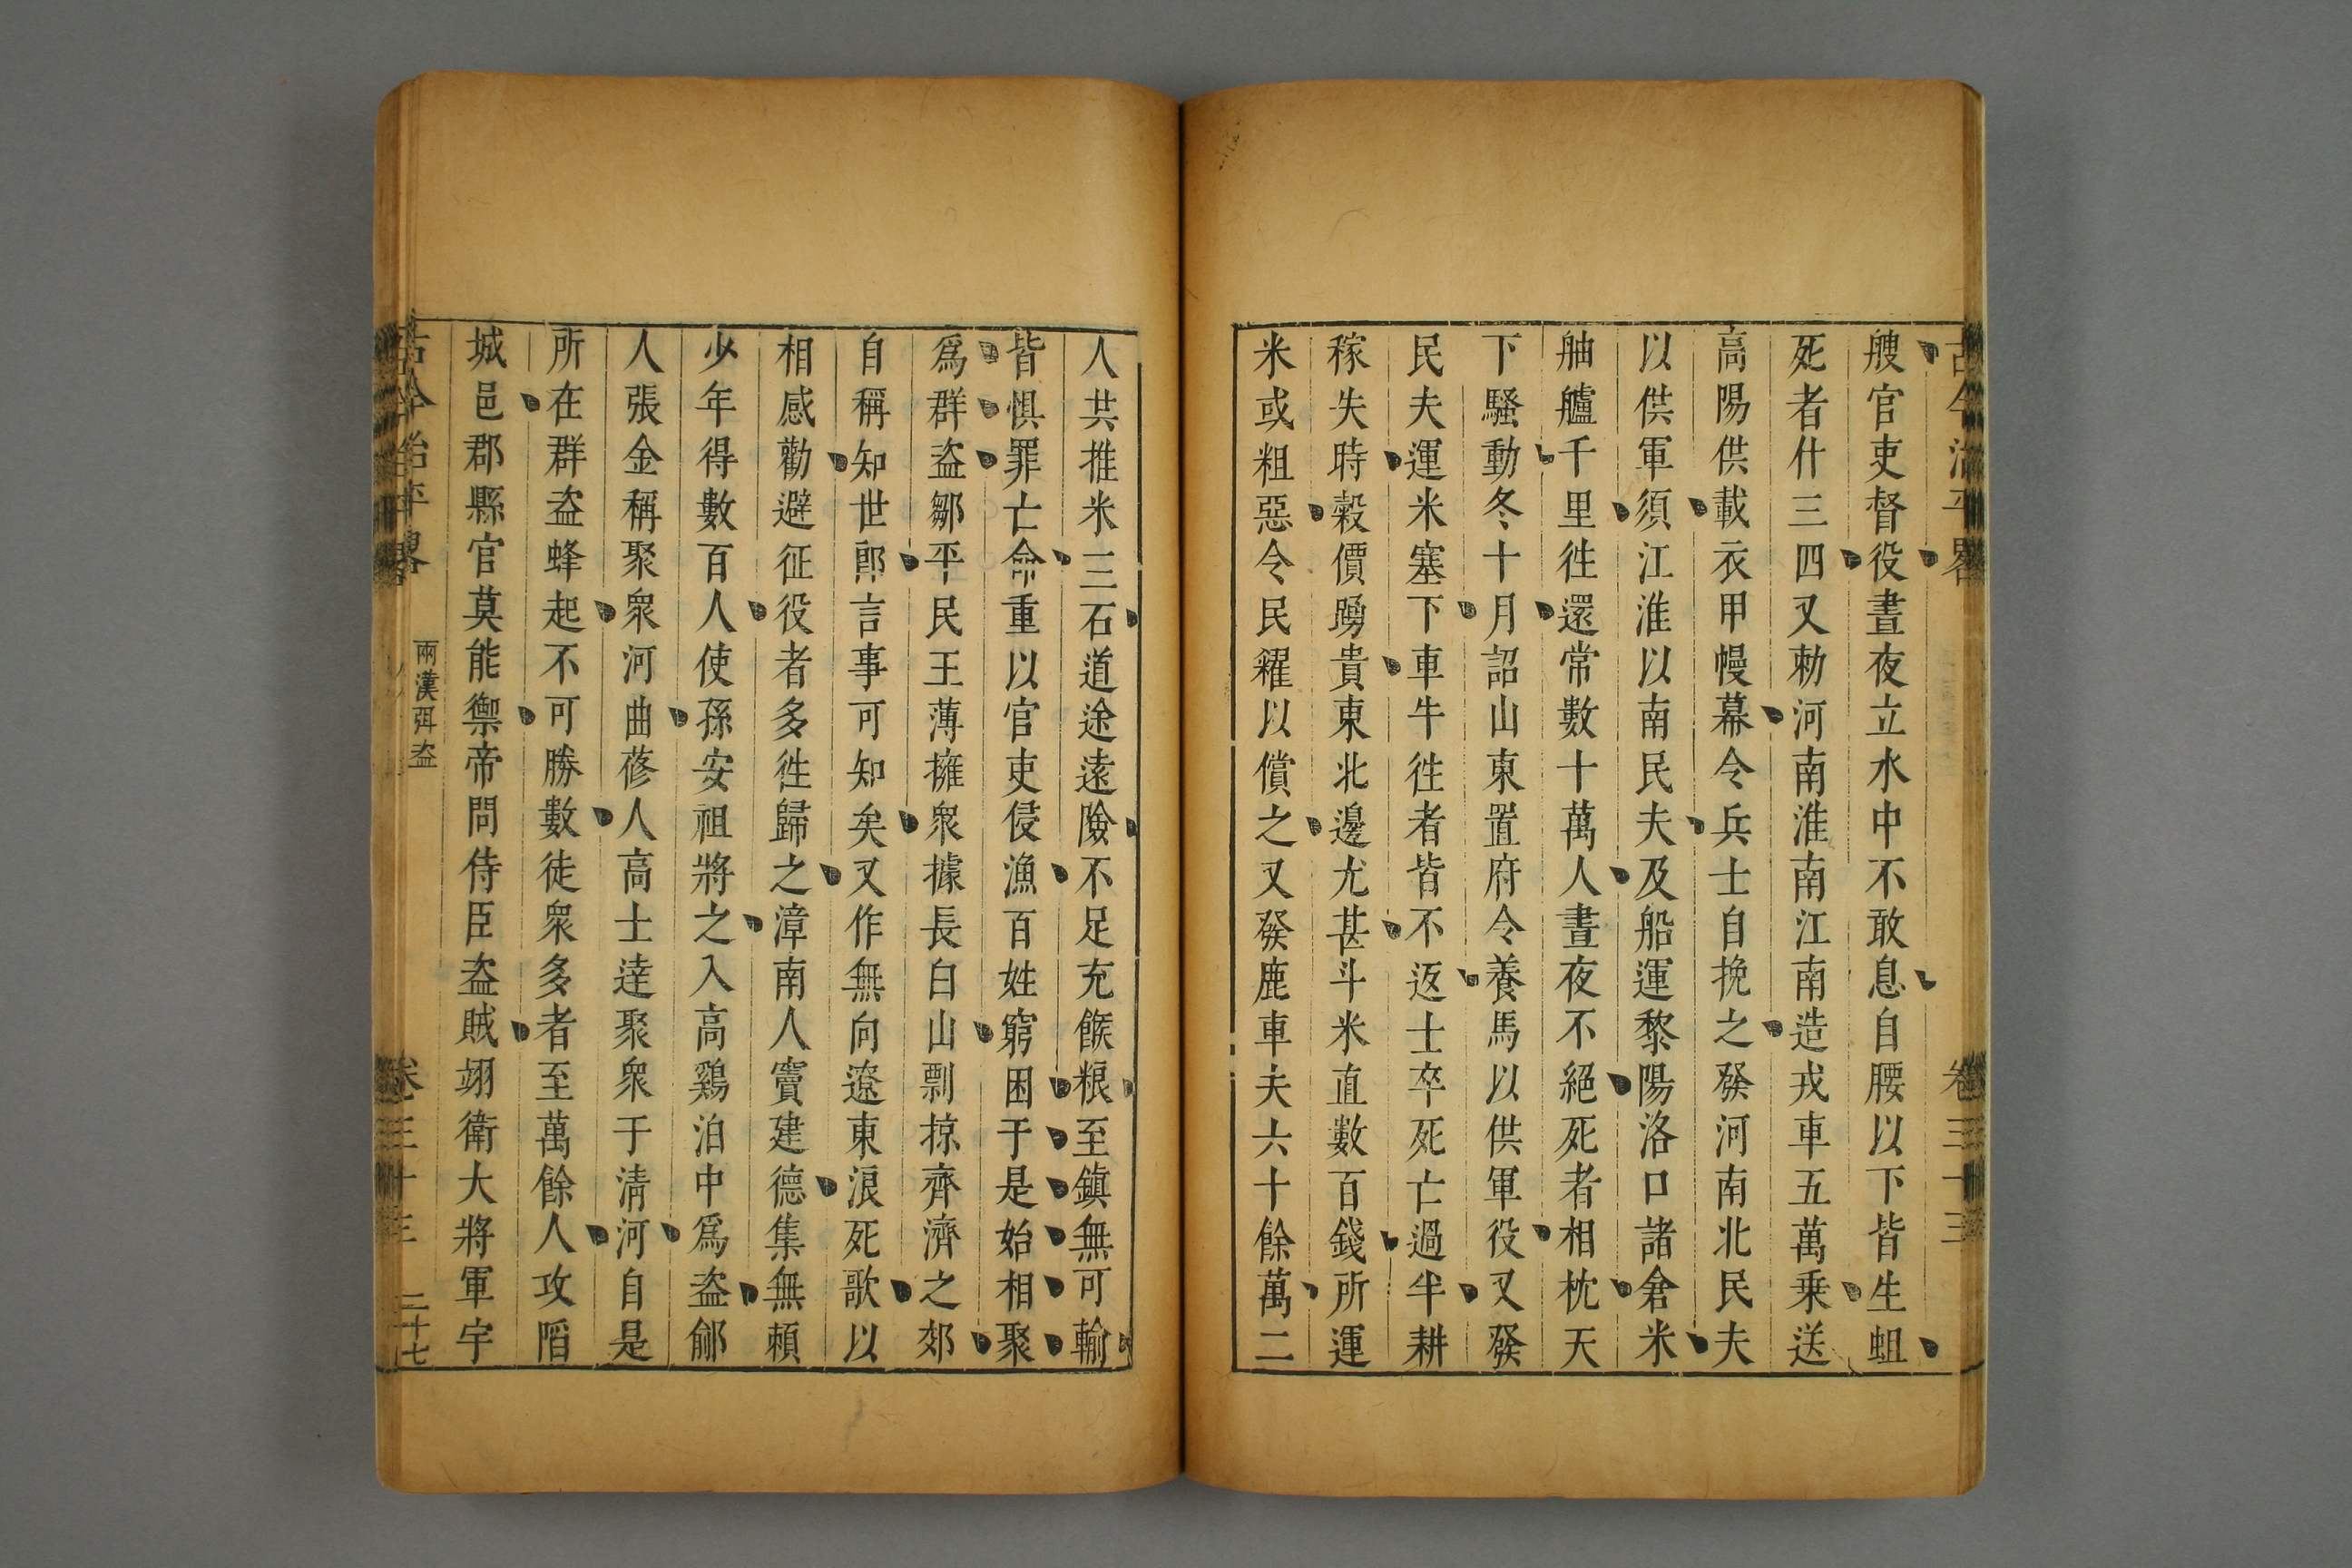 古今治平畧 卷三十三
艘官吏督役晝夜立水中不敢息自腰以下皆生蛆
死者什三四又勑河南淮南江南造戎車五萬乗送
高陽供載衣甲幔幕令兵士自挽之發河南北民夫
以供軍須江淮以南民夫及船運黎陽洛口諸倉米
舳艫千里徃還常數十萬人晝夜不絕死者相枕天
下騷動冬十月詔山東置府令養馬以供軍役又發
民夫運米塞下車牛徃者皆不返士卒死亡過半耕
稼失時穀價踴貴東北邊尤甚斗米直數百錢所運
米或粗惡令民糴以償之又發鹿車夫六十餘萬二
人共推米三石道途遠險不足充餱粮至鎮無可輸
皆惧罪亡命重以官吏侵漁百姓窮困于是始相聚
爲群盗鄒平民王薄擁衆據長白山剽掠齊濟之郊
自稱知世郎言事可知矣又作無向遼東浪死歌以
相感勸避征役者多徃歸之漳南人竇建德集無賴
少年得數百人使孫安祖將之入高鷄泊中爲盗鄃
人張金稱聚衆河曲蓚人高士達聚衆于清河自是
所在群盗蜂起不可勝數徒衆多者至萬餘人攻陷
城邑郡縣官莫能禦帝問侍臣盗賊翊衛大將軍宇
古今治平畧 兩漢弭盗 卷三十三 二十七